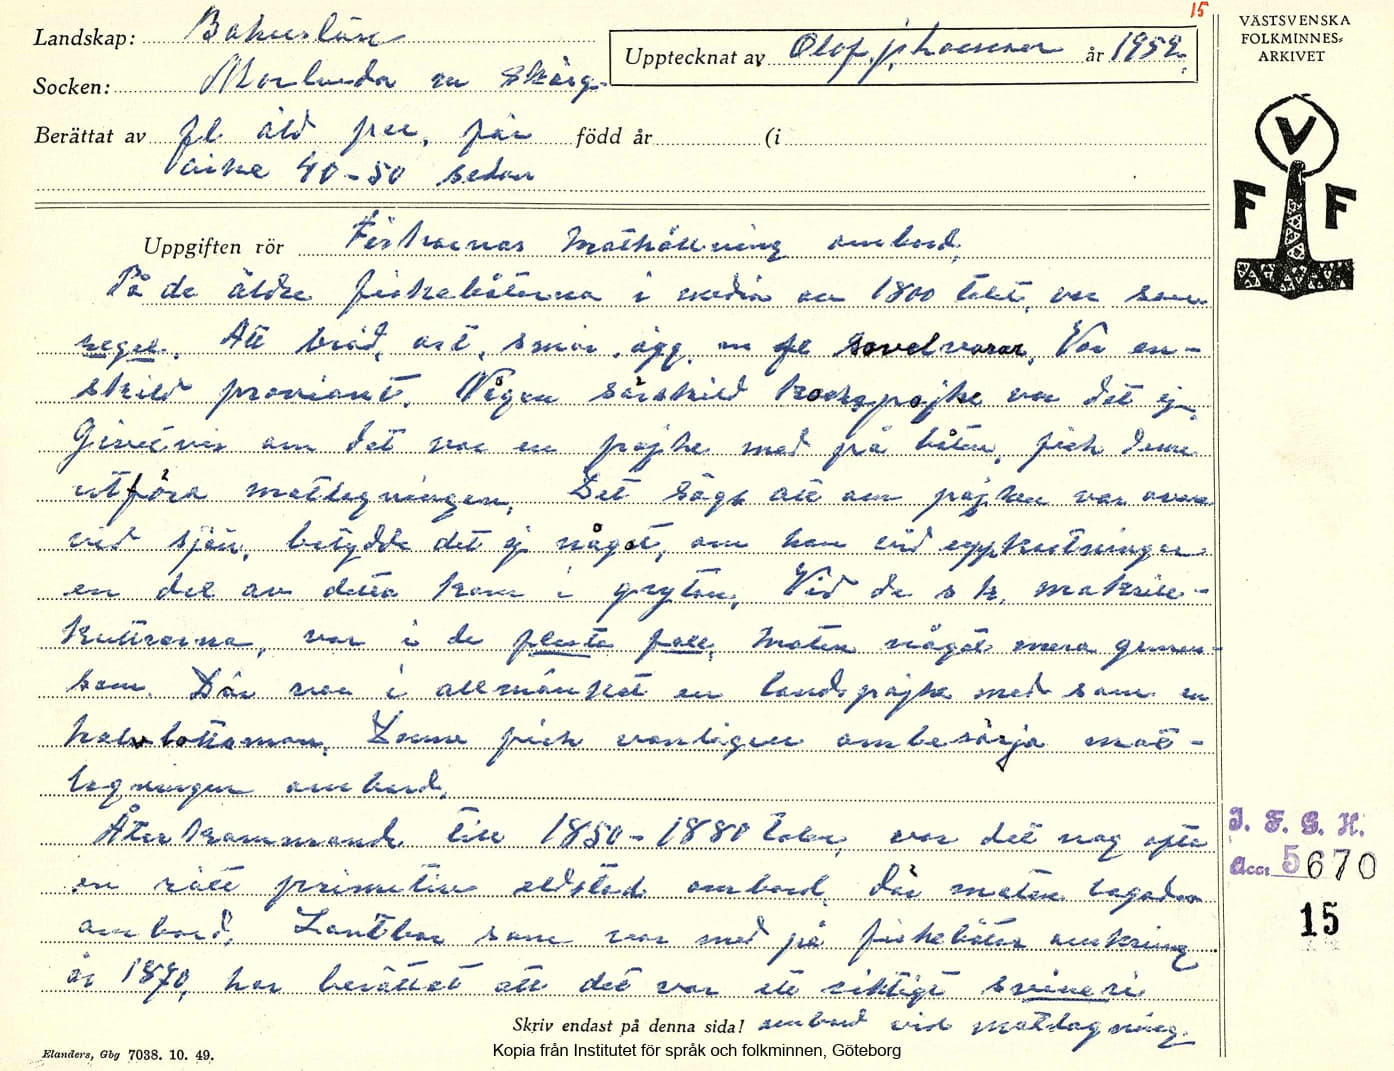 15
VÄSTSVENSKA
FOLKMINNES-
ARKIVET
Landskap: Bohuslän
Upptecknat av Olof Johansson år 1952.
Socken: Morlanda m Skärg-
Berättat av fl. äld pers, för född år (i
cirka 40-50 sedan
V
F F
Uppgiften rör Fiskarnas mathållning ombord.
På de äldre fiskebåtarna i medio av 1800 talet, var som
regel. Att bröd, ost, smör, ägg m fl sovelvaror. Var en-
skild proviant. Någon särskild kockpojke var det ej.
Givetvis om det var en pojke med på båten, fick denne
utföra matlagningen. Det sägs att om pojken var ovan
vid sjön, betydde det ej något, om han vid uppkastningar
en del av detta kom i grytan. Vid de s k. makrill-
kuttrarna, var i de flesta fall, maten något mera gemen-
sam. Där var i allmänhet en landspojke med som en
halvlottsman. Denne fick vanligen ombesörja mat-
lagningen ombord.
Återkommande till 1850-1880 talen, var det nog ofta
en rätt primitiv eldstad ombord, där maten lagades
ombord. som var med på fiskebåten omkring
år 1870, har berättat att det var ett riktigt svineri
Skriv endast på denna sida! ombord vid matlagning.
J. F. G. H.
Acc: 5670
15
Elanders, Gbg 7038. 10. 49.
Kopia från Institutet för språk och folkminnen, Göteborg